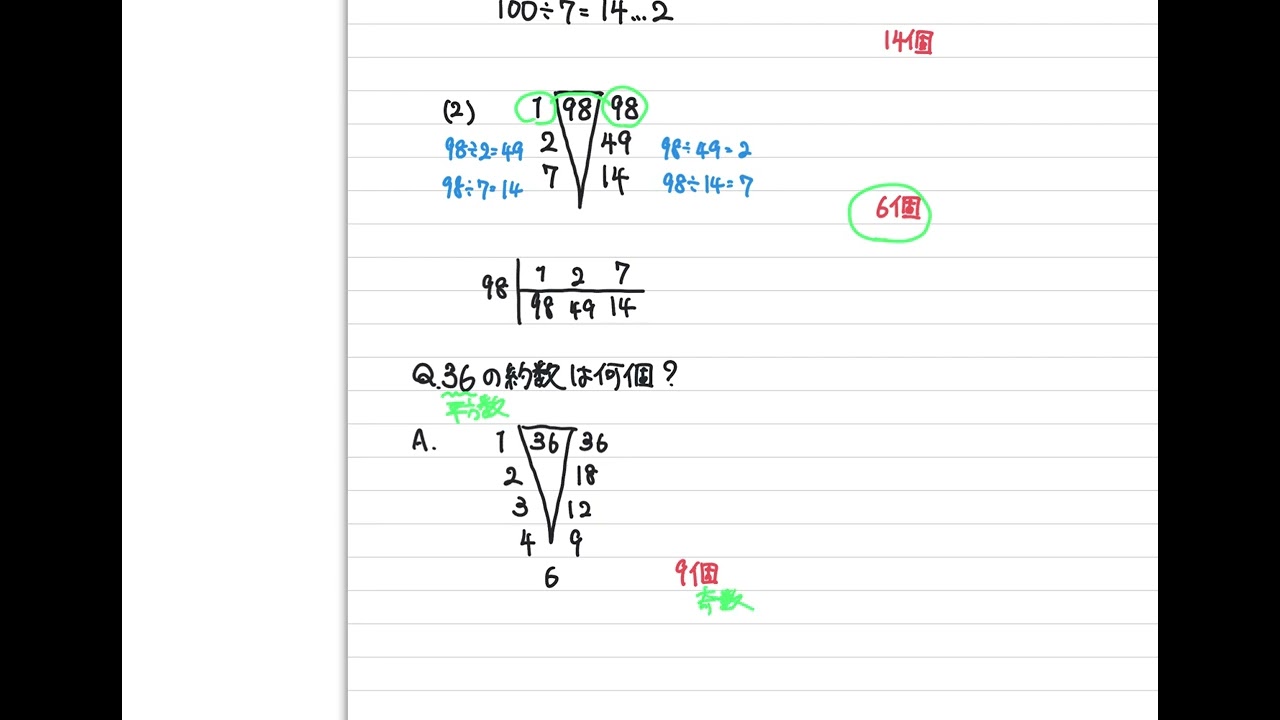 100÷7=14…2
14個
(2) 1 98 98
98÷2=49 2 49 98÷49=2
98÷7=14 7 14 98÷14=7
6個
98 1 2 7
98 49 14
Q.36の約数は何個?
平方数
A. 1 36 36
2 18
3 12
4 9
6 9個
奇数